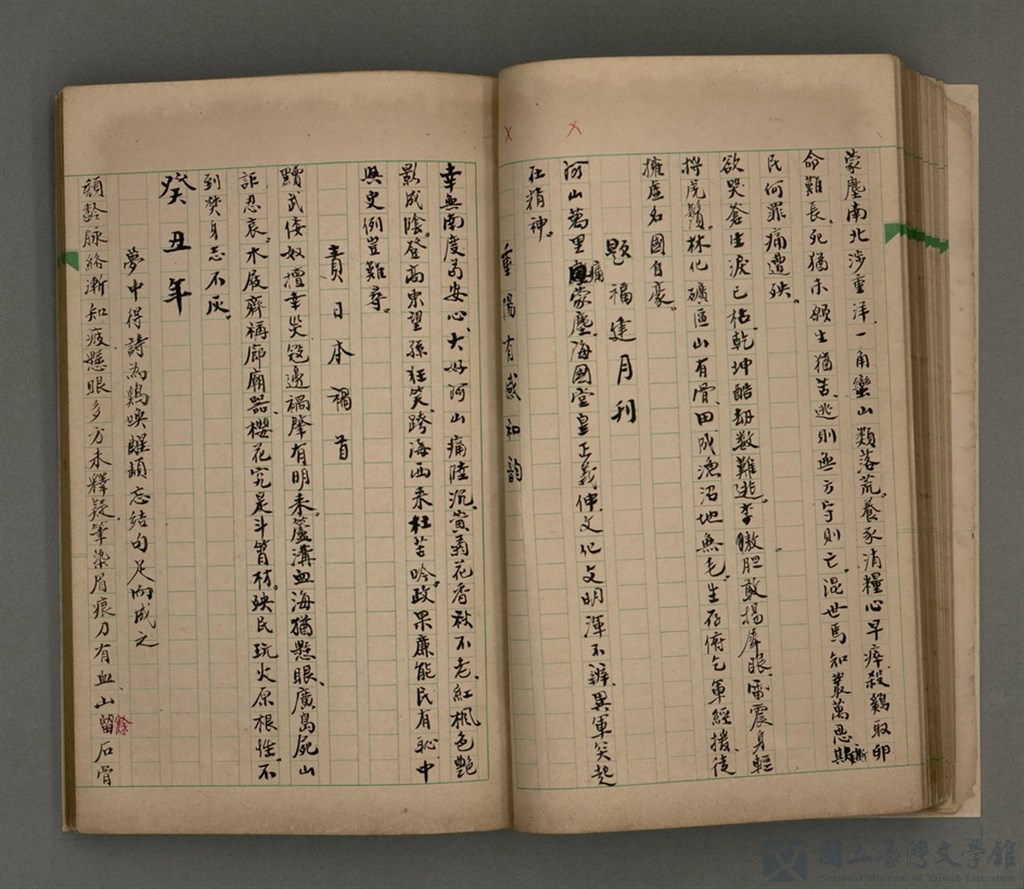 蒙塵南北涉重洋、一角蠻山類落荒。養豕消糧心早瘁、殺鷄取卵
命難長、死猶未願生猶苦、逃則無方守則亡。混世馬知叢萬愚
民何罪痛遭殃。
欲哭蒼生淚已枯、乾坤酷劫數難逃。李膽敢揚犀眼、雷震身輕
捋虎鬚。林化礦區山有骨、田成漁沼地無毛。生存俯乞軍經援、徒
擁虛名國自豪。
題福建月刊
河山萬里痛蒙塵、海國堂皇正義伸、文化文明渾不辨、異軍突起
壯精神。
重陽有感和韵
幸無南度苟安心、大好河山痛陸沉、黃菊花香秋不老、紅楓色艷
影成陰。登高東望孫狂笑、跨海西來杜苦吟。政果廉能民有恥、中
興史例豈難尋。
責日本禍首
黷武倭奴擅幸災、毀邊禍肇有明來、蘆溝血海猶懸眼、廣島屍山
詎忍哀。木屐齊稱廊廟器、櫻花究是斗筲材。殃民玩火原根性、不
到焚身志不灰。
癸丑年
夢中得詩為鷄喚醒頓忘結句足而成之
頹齡脉絡漸知疲、懸眼多方未釋疑、筆染眉痕刀有血、山留餘石骨
國立臺灣文學館
National Museum of Taiwan Literature